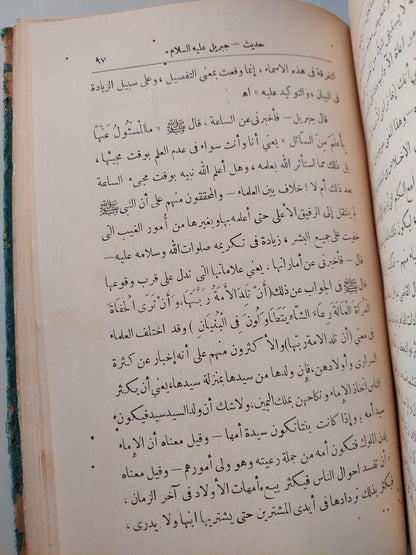 حديث — جبريل عليه السلام ٩٧
التفرقة في هذه الاسماء ، إنما وقعت بمعنى التفصيل ، وعلى سبيل الزيادة
في البيان ، والتوكيد عليه » اهـ
قال جبريل — فأخبرني عن الساعة ، قال ﷺ « ما المسئول عنها
بأعلم من السائل » يعني أنا وأنت سواء في عدم العلم بوقت مجيئها ،
بل ذلك مما استأثر الله بعلمه ، وهل أعلم الله نبيه بوقت مجيء الساعة
بعد ذلك أم لا ! خلاف بين العلماء — والمحققون منهم على أن النبي ﷺ
لم ينتقل إلى الرفيق الأعلى حتى أعلمه بها وبغيرها من أمور الغيب التي
خفيت على جميع البشر ، زيادة في تكريمه صلوات الله وسلامه عليه —
قال — فأخبرني عن أماراتها ، يعني علاماتها التي تدل على قرب وقوعها
قال ﷺ في الجواب عن ذلك (أن تلد الأمة ربتها ، و أن ترى الحفاة
العراة العالة رعاء الشاء يتطاولون في البنيان ) وقد اختلف العلماء
في معنى (أن تلد الامة ربتها) والأكثرون منهم على أنه إخبار عن كثرة
السراري وأولادهن ، فإن ولدها من سيدها بمنزلة سيدها ، يعني أن يكثر
الناس إتخاذ الإماء و نكاحهن بملك اليمين ، ولا شك أن ولد السيد سيد فيكون
سيد أمه ، وإذا كانت بنتا تكون سيدة أمها — وقيل معناه أن الإماء
الملوك فتكون أمه من جملة رعيته وهو ولي أمورهم — وقيل معناه
أن تفسد احوال الناس فيكثر بيع أمهات الأولاد في آخر الزمان ،
فيكثر بذلك تردادها في أيدي المشترين حتى يشتريها ابنها ولا يدرى ،